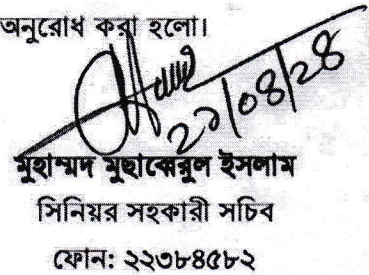 অনুরোধ করা হলো।
মুহাম্মদ মুছাব্বেরুল ইসলাম
সিনিয়র সহকারী সচিব
ফোন: ২২৩৮৪৫৮২